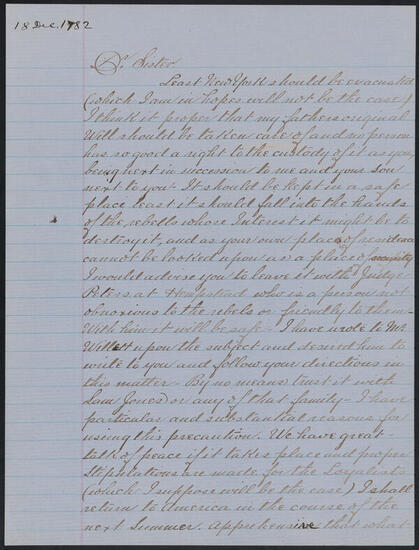 18 Dec. 1782
Dr. Sister
Least New York should be evacuated
(which I am in hopes will not be the case)
I think it proper that my fathers original
Will should be taken care of and no person
has so good a right to the custody of it as you
being next in succession to me and your Son
next to you. It should be kept in a safe
place least it should fall into the hands
of the rebells whose Interest it might be to
destroy it, and as your own place of residence
cannot be looked upon as a place of security
I would advise you to leave it with Judge
Peters at Hempstead who is a person not
obnoxious to the rebels or friendly to them -
With him it will be safe - I have wrote to Mr
Willett upon the subject and desired him to
write to you and follow your directions in
this matter - By no means trust it with
Sam Jones or any of that family - I have
particular and substantial reasons for
using this precaution. We have great
talk of peace if it takes place and proper
Stipulations are made for the Loyalists
(which I suppose will be the case) I shall
return to America in the course of the
next Summer. Apprehensive that what